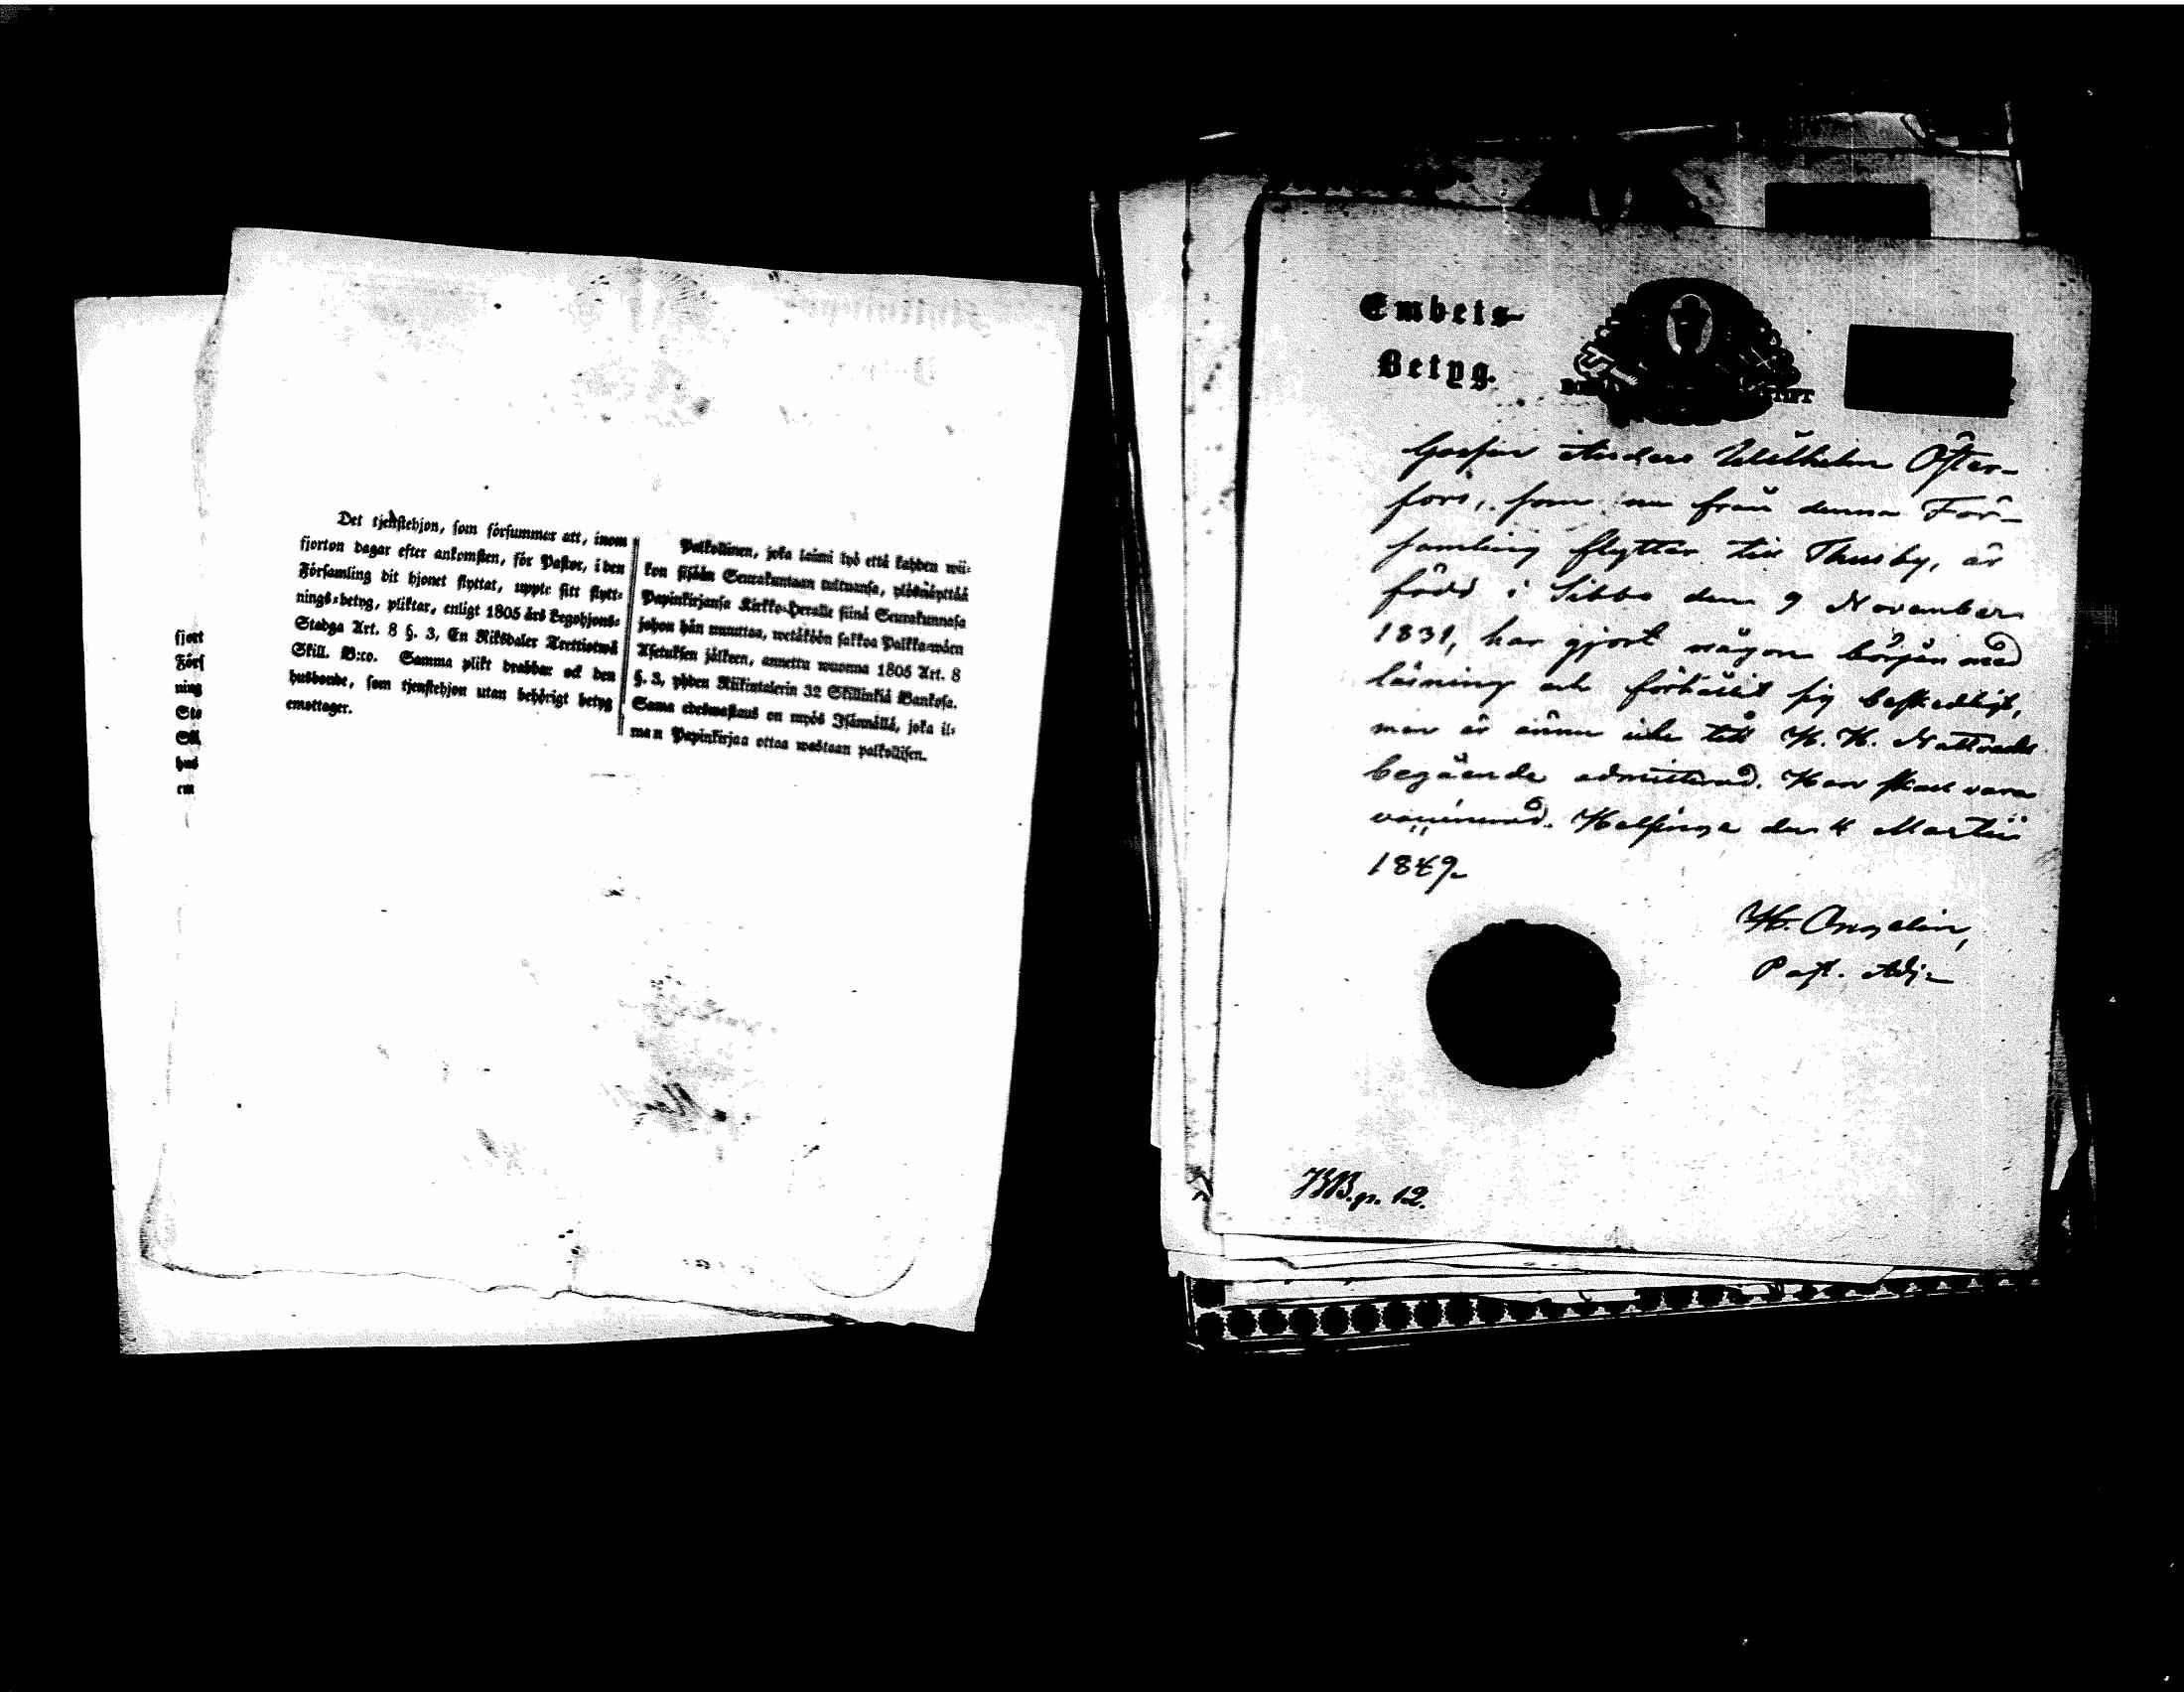 Det tjenstehjon, som försummar att, inom
fjorton dagar efter ankomsten, för Pastor, i den
Församling dit hjonet flyttat, uppte sitt flytt-
nings-betyg, pliktar, enligt 1805 års Legohjons-
Stadga Art. 8 §. 3, En Riksdaler Trettiotwå
Skill. B:co. Samma plikt drabbar ock den
husbonde, som tjenstehjon utan behörigt betyg
emottager.
Palkollinen, joka laimi lyö että kahden wii-
kon sisään Seurakuntaan tultuansa, ylösnäyttää
Papinkirjansa Kirkko-Herralle siinä Seurakunnasa
johon hän muuttaa, wetäköön sakkoa Palkka-wäen
Asetuksen jälkeen, annettu wuonna 1805 Art. 8
§. 3, yhden Riikintalerin 32 Skillinkiä Bankosa.
Sama edeswastaus on myös Isännällä, joka il-
man Papinkirjaa ottaa wastaan palkollisen.
fjort
Förs
ning
Sta
Skil
hus
em
Embets-
Betyg.
Gossen Anders Wilhelm Öster-
fors, som nu från denna För-
samling flyttar till Thusby, är
född i Sibbo den 9 November
1831, har gjort någon början med
läsning och förhållit sig beskedligt,
men är ännu icke till H. H. Nattvards
begående admitterad. Han skall vara
vaccinerad. Helsinge den 4 Martii
1849.
H. Ongelin,
Past. Adj.
12.